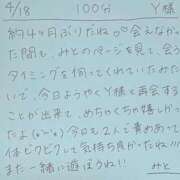 4/18 100分 Y様
約4ヶ月ぶりだね○○会えなかっ
た間も、みとのページを見て、会う
タイミングを伺ってくれていたみた
いで、今日ようやくY様と再会する
ことが出来て、めちゃくちゃ嬉しかっ
たよ(๑˃̵ᴗ˂̵) 今日も2人で責めあって
体ビクビクして気持ち良かったね!!!
また一緒に遊ぼうね!!
みと